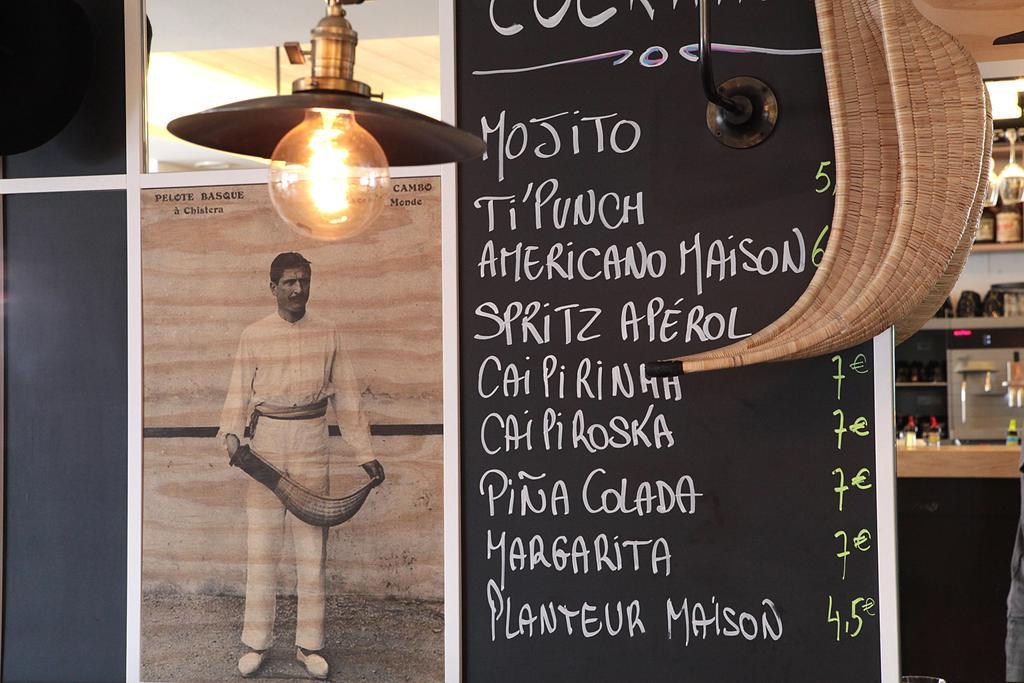 PELOTE BASQUE
à Chistera
CAMBO
Monde
MOJITO
TI'PUNCH 5
AMERICANO MAISON 6
SPRITZ APÉROL
CAIPIRINHA 7€
CAIPIROSKA 7€
PIÑA COLADA 7€
MARGARITA 7€
PLANTEUR MAISON 4,5€